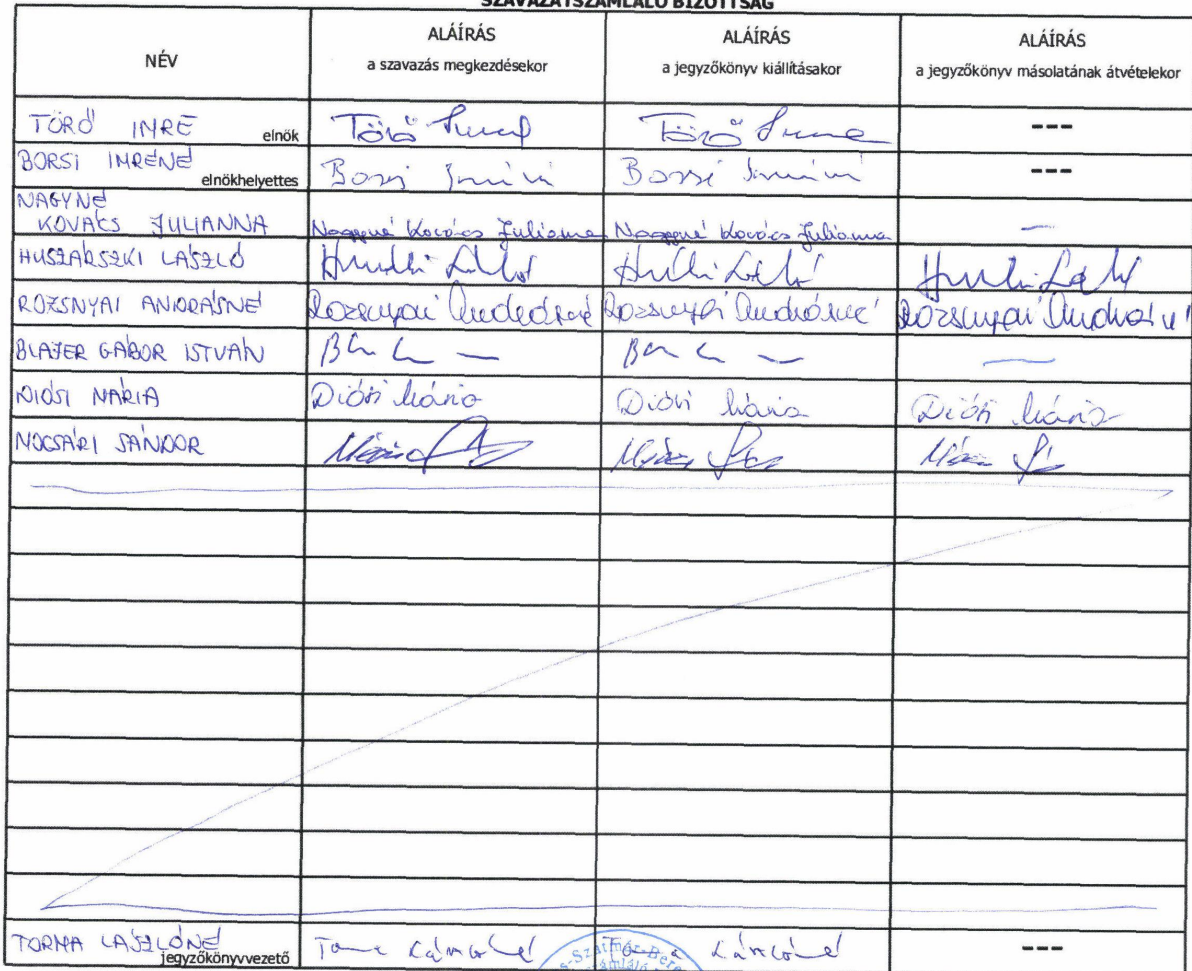 SZAVAZATSZÁMLÁLÓ BIZOTTSÁG
NÉV
ALÁÍRÁS
a szavazás megkezdésekor
ALÁÍRÁS
a jegyzőkönyv kiállításakor
ALÁÍRÁS
a jegyzőkönyv másolatának átvételekor
TÖRŐ IMRE elnök Törő Imre Törő Imre ---
BORSI IMRÉNÉ elnökhelyettes Borsi Imréné Borsi Imréné ---
NAGYNÉ
KOVÁCS JULIANNA Nagyné Kovács Julianna Nagyné Kovács Julianna —
HUSZÁRSZKI LÁSZLÓ
ROZSNYAI ANDRÁSNÉ Rozsnyai Andrásné Rozsnyai Andrásné Rozsnyai Andrásné
BLAJER GÁBOR ISTVÁN —
DIÓSI MÁRIA Diósi Mária Diósi Mária Diósi Mária
MOCSÁRI SÁNDOR
TORMA LÁSZLÓNÉ jegyzőkönyvvezető ---